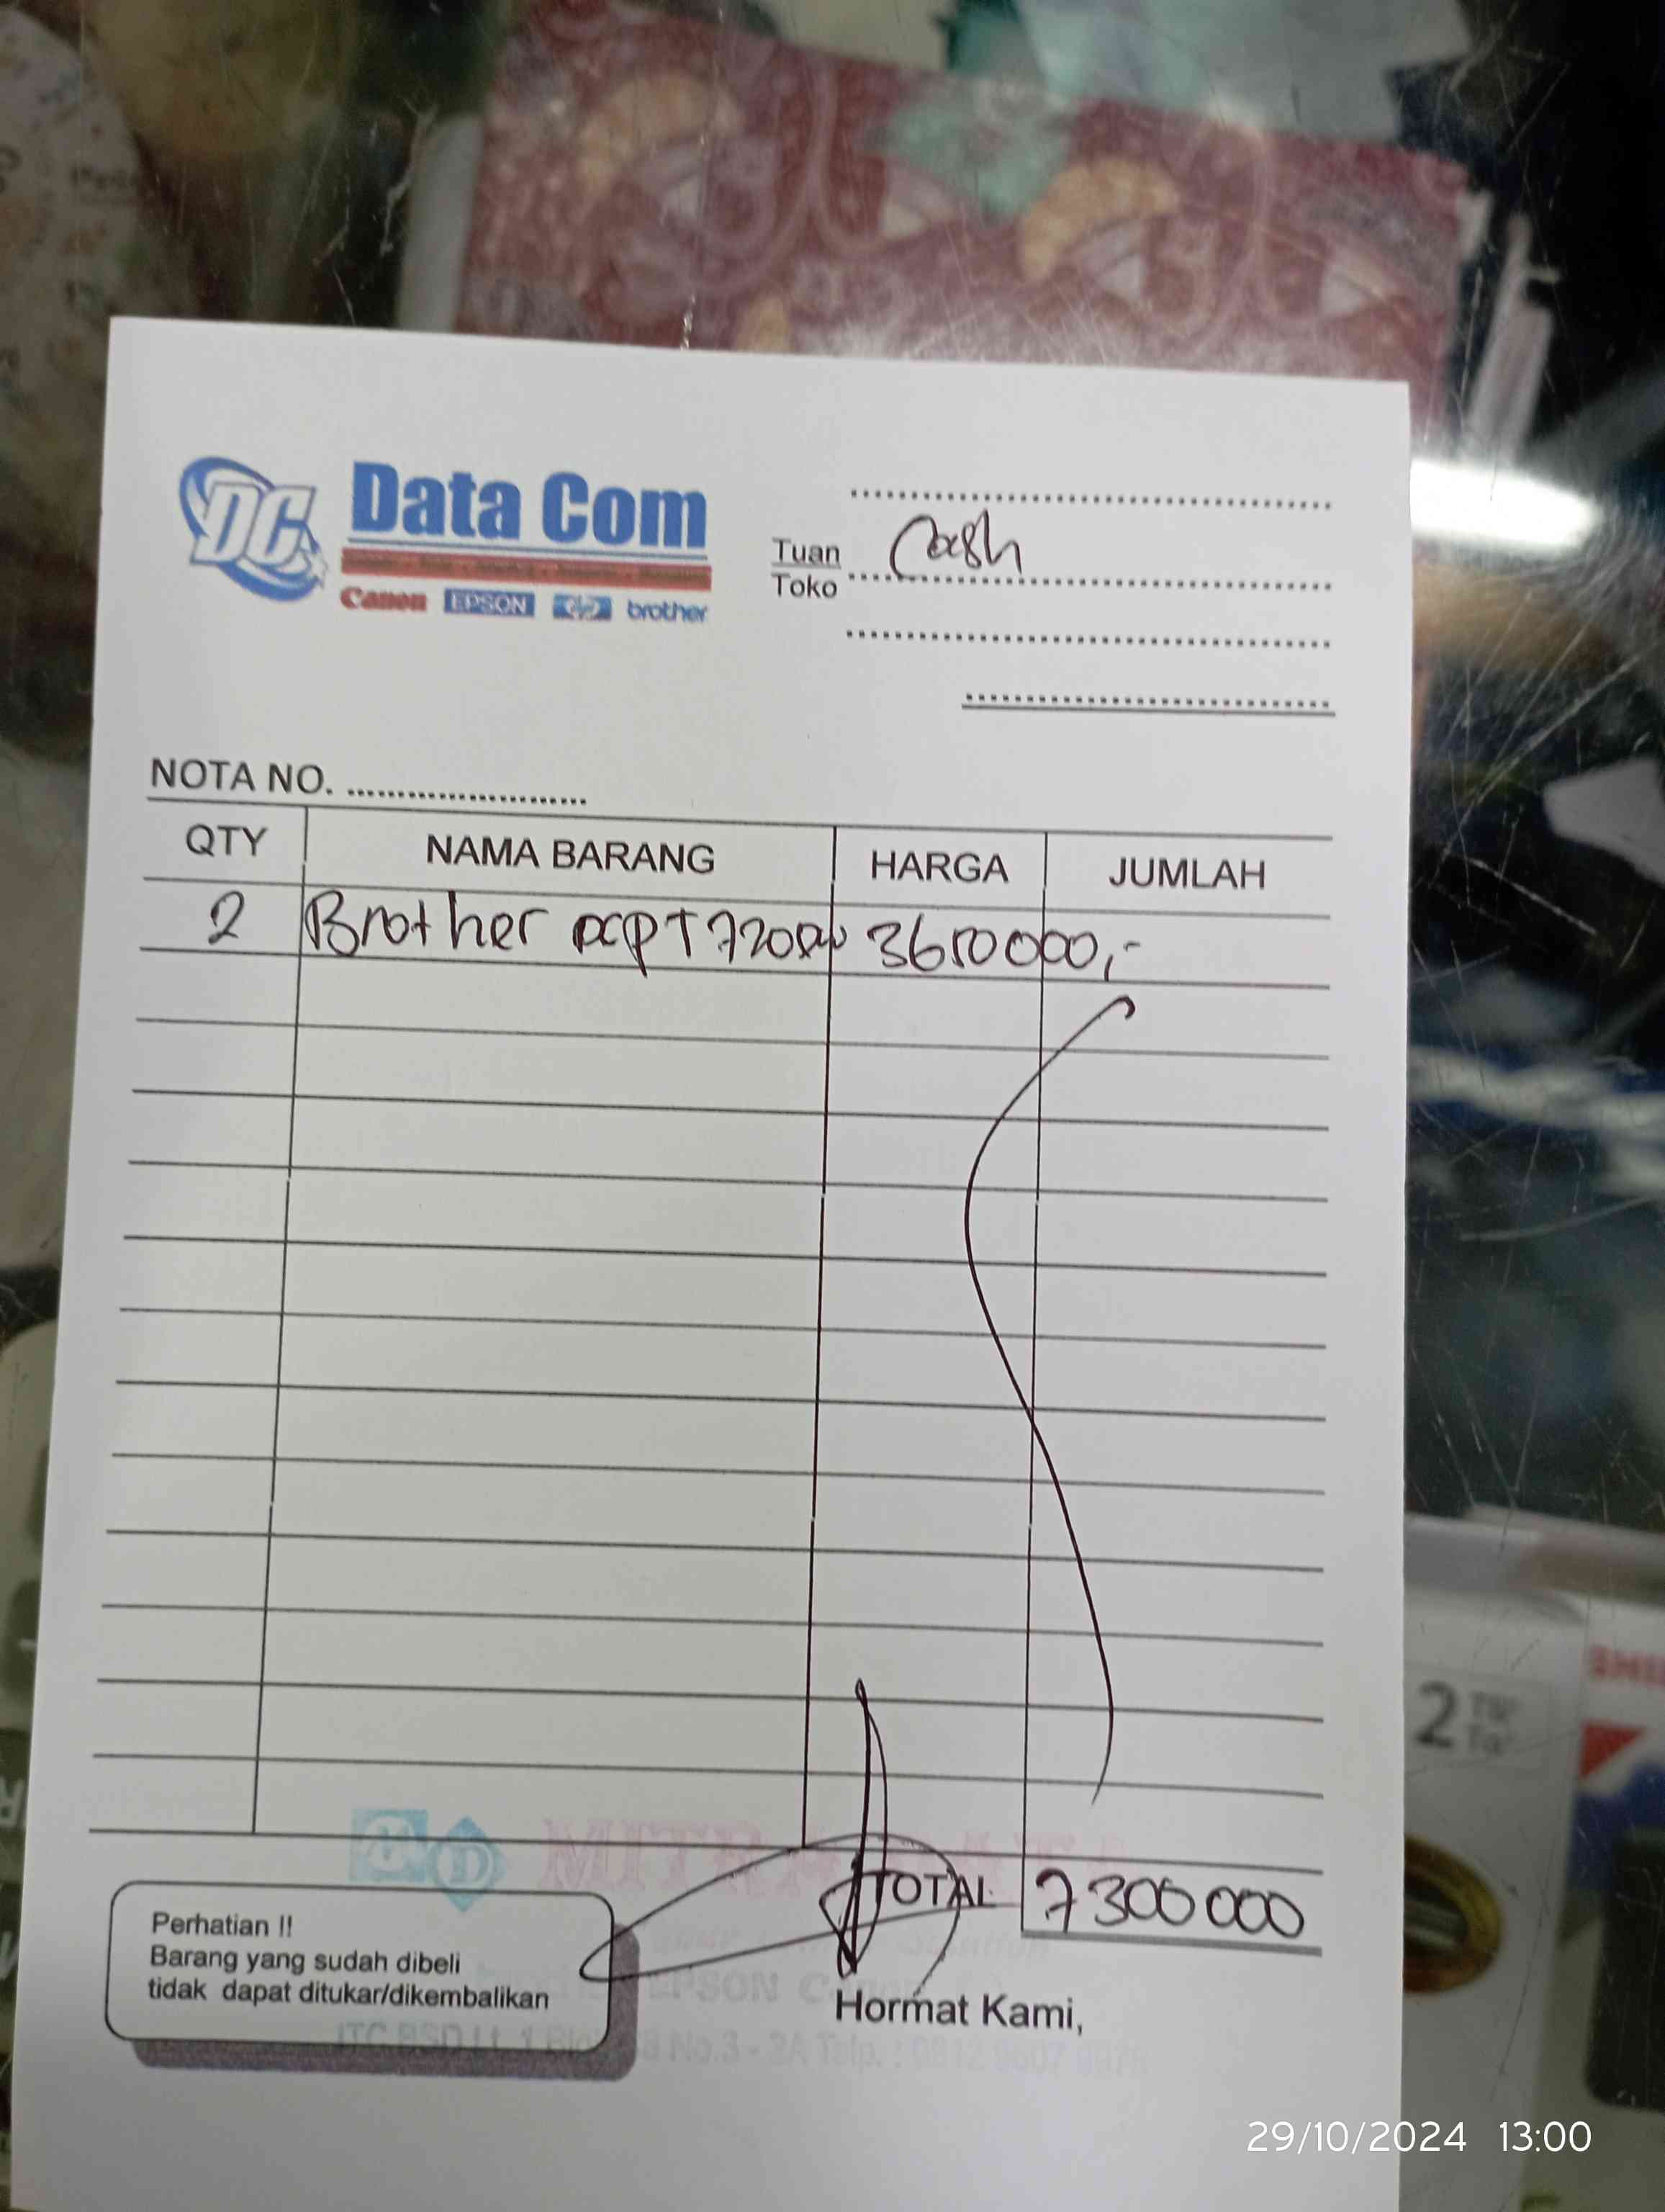 DC Data Com
Canon EPSON hp brother
Tuan Cash
Toko
NOTA NO.
QTY NAMA BARANG HARGA JUMLAH
2 Brother DCP T720DW 3650000,-
TOTAL 7300000
Perhatian !!
Barang yang sudah dibeli
tidak dapat ditukar/dikembalikan
Hormat Kami,
EPSON
2
29/10/2024 13:00